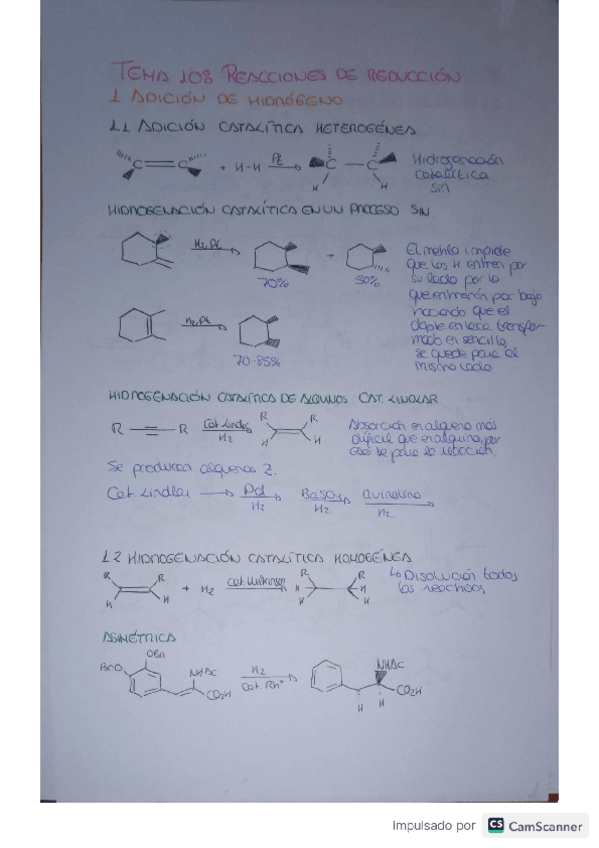 TEMA 10B REACCIONES DE REDUCCIÓN
1. ADICIÓN DE HIDRÓGENO
1.1 ADICIÓN CATALÍTICA HETEROGÉNEA
C C + H-H Pt C — C
H H
Hidrogenación
catalítica
sin
HIDROGENACIÓN CATALÍTICA EN UN PROCESO SIN
H2, Pt +
70% 30%
El metilo impide
que los H entren por
su lado por lo
que entrarán por bajo
haciendo que el
doble enlace transfor-
mado en sencillo
se quede para el
mismo lado
H2, Pt
70-85%
HIDROGENACIÓN CATALÍTICA DE ALQUINOS CAT. LINDLAR
R R Cat. Lindlar H2 R R H H
Absorción en alqueno más
difícil que en alquino, por
eso se para la reacción.
Se producen alquenos Z.
Cat. Lindlar Pd H2 BaSO4 H2 Quinolina H2
1.2 HIDROGENACIÓN CATALÍTICA HOMOGÉNEA
R R H H + H2 Cat. Wilkinson R R H H H
Disolución todos
los reactivos
ASIMÉTRICA
OBn
BnO NHAc CO2H H2 Cat. Rh* NHAc CO2H H H
Impulsado por CS CamScanner